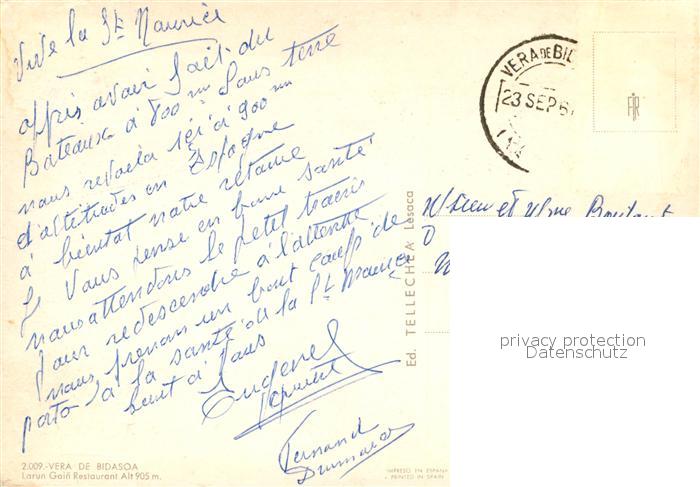 Vive la St Maurice
apprès avoir fait du
Bateaux à 800 m Sous terre
nous revoila ici à 900 m
d'altitudes en Espagne
à bientot notre retour
Je Vous pense en bonne santé
nous attendons le petit train
pour redescendre à l'attente
nous prenons un bout coup de
porto à la santé de la St Maurice
Salut à tous
Eugene
Fernand
VERA DE BID
23 SEP 6
FJR
Ed. TELLECHEA Lesaca
Mr et Mme
privacy protection
Datenschutz
2.009.-VERA DE BIDASOA
Larun Gaiñ Restaurant Alt 905 m.
IMPRESO EN ESPAÑA
PRINTED IN SPAIN